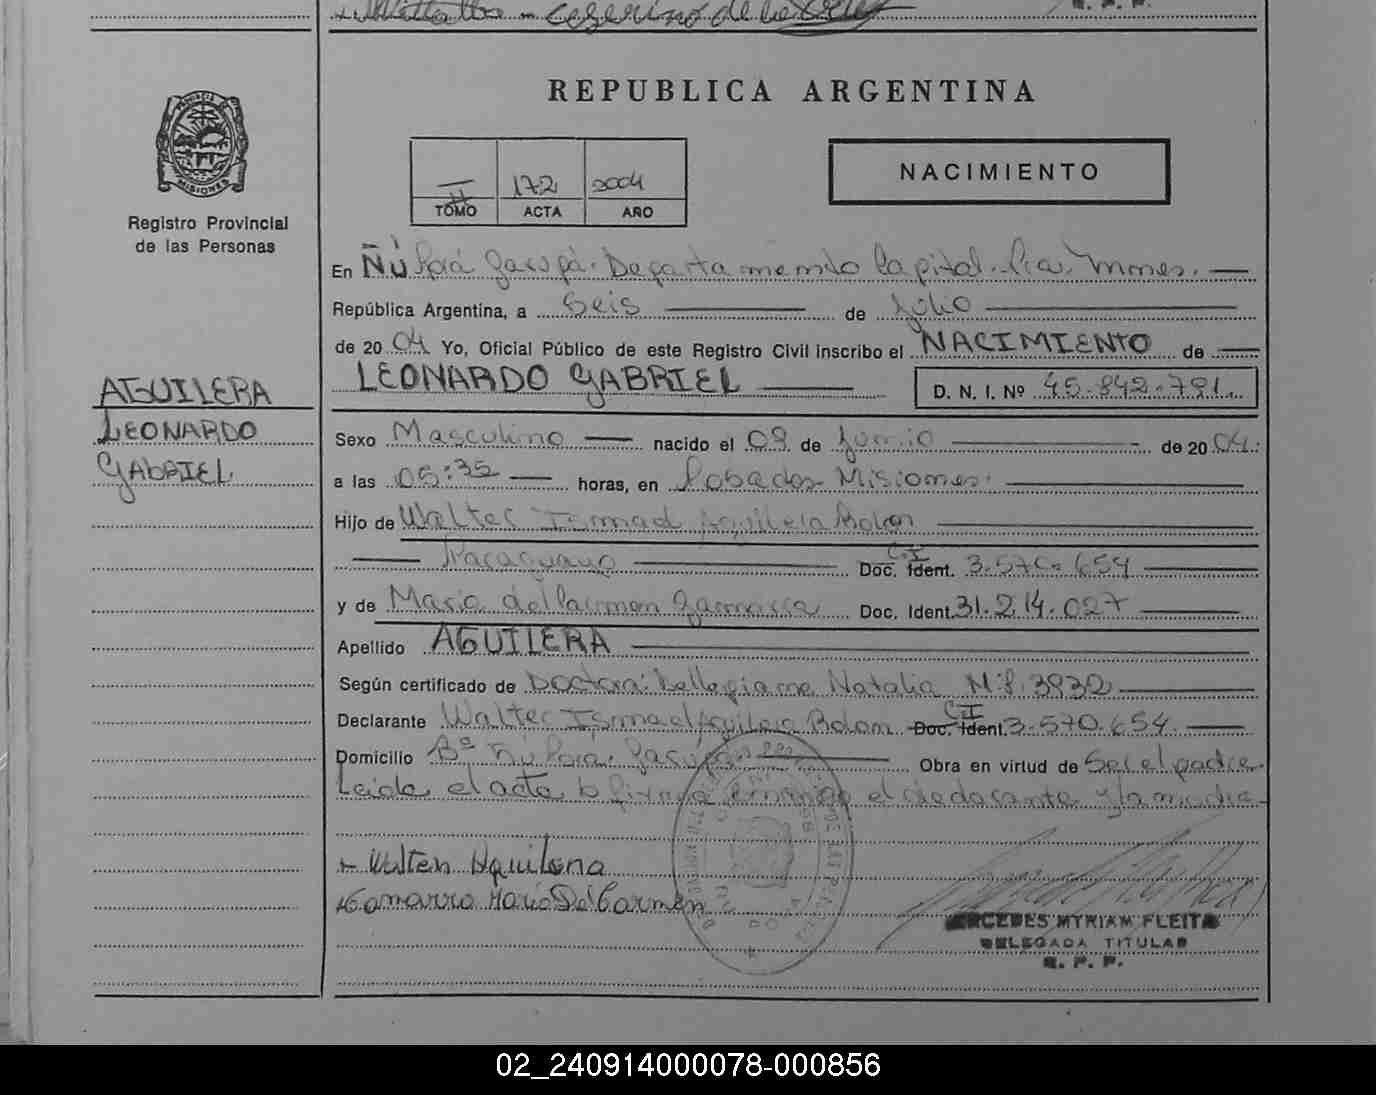 REPUBLICA ARGENTINA
PROVINCIA DE MISIONES
Registro Provincial
de las Personas
172 2004
TOMO ACTA AÑO
NACIMIENTO
En Ñú Porá Garupá. Departamento Capital. Pcia. Mnes.
República Argentina, a Seis de Julio
de 2004 Yo, Oficial Público de este Registro Civil inscribo el NACIMIENTO de
LEONARDO GABRIEL D. N. I. Nº 45.842.791
AGUILERA
LEONARDO
GABRIEL
Sexo Masculino nacido el 09 de Junio de 2004
a las 05:35 horas, en Posadas Misiones.
Hijo de Walter Ismael Aguilera
Paraguayo C.I Doc. Ident. 3.570.654
y de Maria del Carmen Gamarra Doc. Ident. 31.214.027
Apellido AGUILERA
Según certificado de Doctora: Natalia M.P. 3932
Declarante Walter Ismael Aguilera C.I Doc. Ident. 3.570.654
Domicilio Bº Ñú Porá. Garupá. Obra en virtud de Ser el padre.
Leida el acta la firman el declarante y la madre.
Walter Aguilera
Gamarra María Del Carmen
MERCEDES MYRIAM FLEITA
DELEGADA TITULAR
R. P. P.
02_240914000078-000856